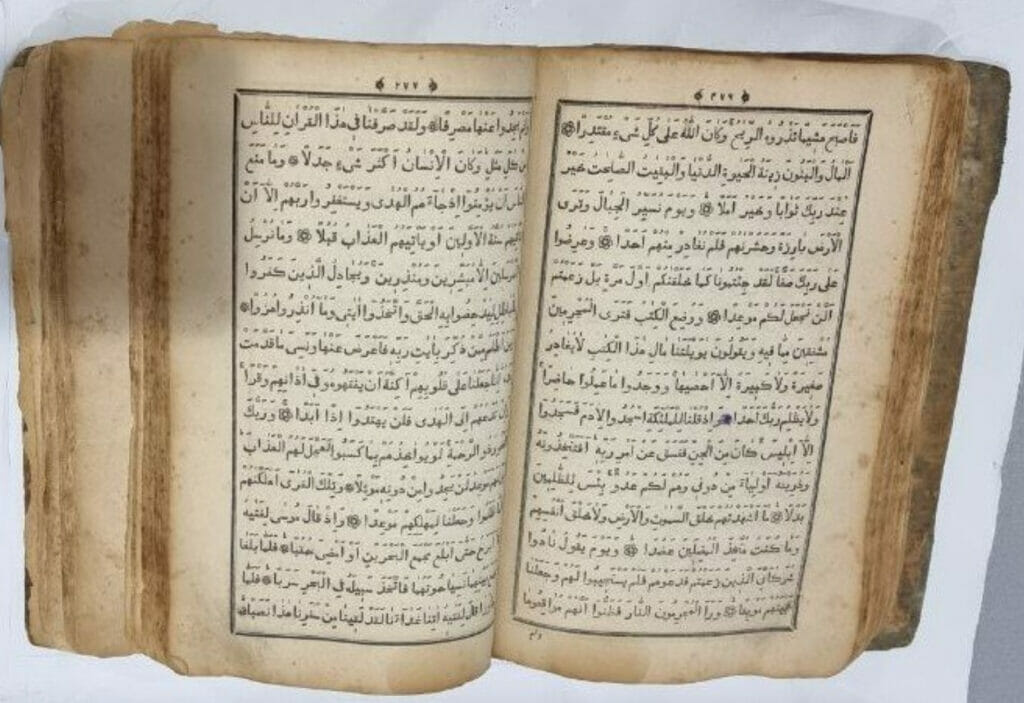 ﴿ ٢٧٦ ﴾
فاصبح هشيما تذروه الريح وكان الله على كل شىء مقتدرا
المال والبنون زينة الحيوة الدنيا والبقيت الصلحت خير
عند ربك ثوابا وخير املا ويوم نسير الجبال وترى
الارض بارزة وحشرنهم فلم نغادر منهم احدا وعرضوا
على ربك صفا لقد جئتمونا كما خلقنكم اول مرة بل زعمتم
الن نجعل لكم موعدا ووضع الكتب فترى المجرمين
مشفقين مما فيه ويقولون يويلتنا مال هذا الكتب لا يغادر
صغيرة ولا كبيرة الا احصيها ووجدوا ما عملوا حاضرا
ولا يظلم ربك احدا واذ قلنا للملئكة اسجدوا لادم فسجدوا
الا ابليس كان من الجن ففسق عن امر ربه افتتخذونه
وذريته اولياء من دونى وهم لكم عدو بئس للظلمين
بدلا ما اشهدتهم خلق السموت والارض ولا خلق انفسهم
وما كنت متخذ المضلين عضدا ويوم يقول نادوا
شركاءى الذين زعمتم فدعوهم فلم يستجيبوا لهم وجعلنا
بينهم موبقا ورا المجرمون النار فظنوا انهم مواقعوها
ولم
﴿ ٢٧٧ ﴾
ولم يجدوا عنها مصرفا ولقد صرفنا فى هذا القران للناس
من كل مثل وكان الانسان اكثر شىء جدلا وما منع
الناس ان يؤمنوا اذ جاءهم الهدى ويستغفروا ربهم الا ان
تاتيهم سنة الاولين او ياتيهم العذاب قبلا وما نرسل
المرسلين الا مبشرين ومنذرين ويجادل الذين كفروا
بالباطل ليدحضوا به الحق واتخذوا ايتى وما انذروا هزوا
ومن اظلم ممن ذكر بايت ربه فاعرض عنها ونسى ما قدمت
انا جعلنا على قلوبهم اكنة ان يفقهوه وفى اذانهم وقرا
وان تدعهم الى الهدى فلن يهتدوا اذا ابدا وربك
الغفور ذو الرحمة لو يؤاخذهم بما كسبوا لعجل لهم العذاب
بل لهم موعد لن يجدوا من دونه موئلا وتلك القرى اهلكنهم
لما ظلموا وجعلنا لمهلكهم موعدا واذ قال موسى لفتيه
لا ابرح حتى ابلغ مجمع البحرين او امضى حقبا فلما بلغا
مجمع بينهما نسيا حوتهما فاتخذ سبيله فى البحر سربا فلما
جاوزا قال لفتيه اتنا غداءنا لقد لقينا من سفرنا هذا نصبا